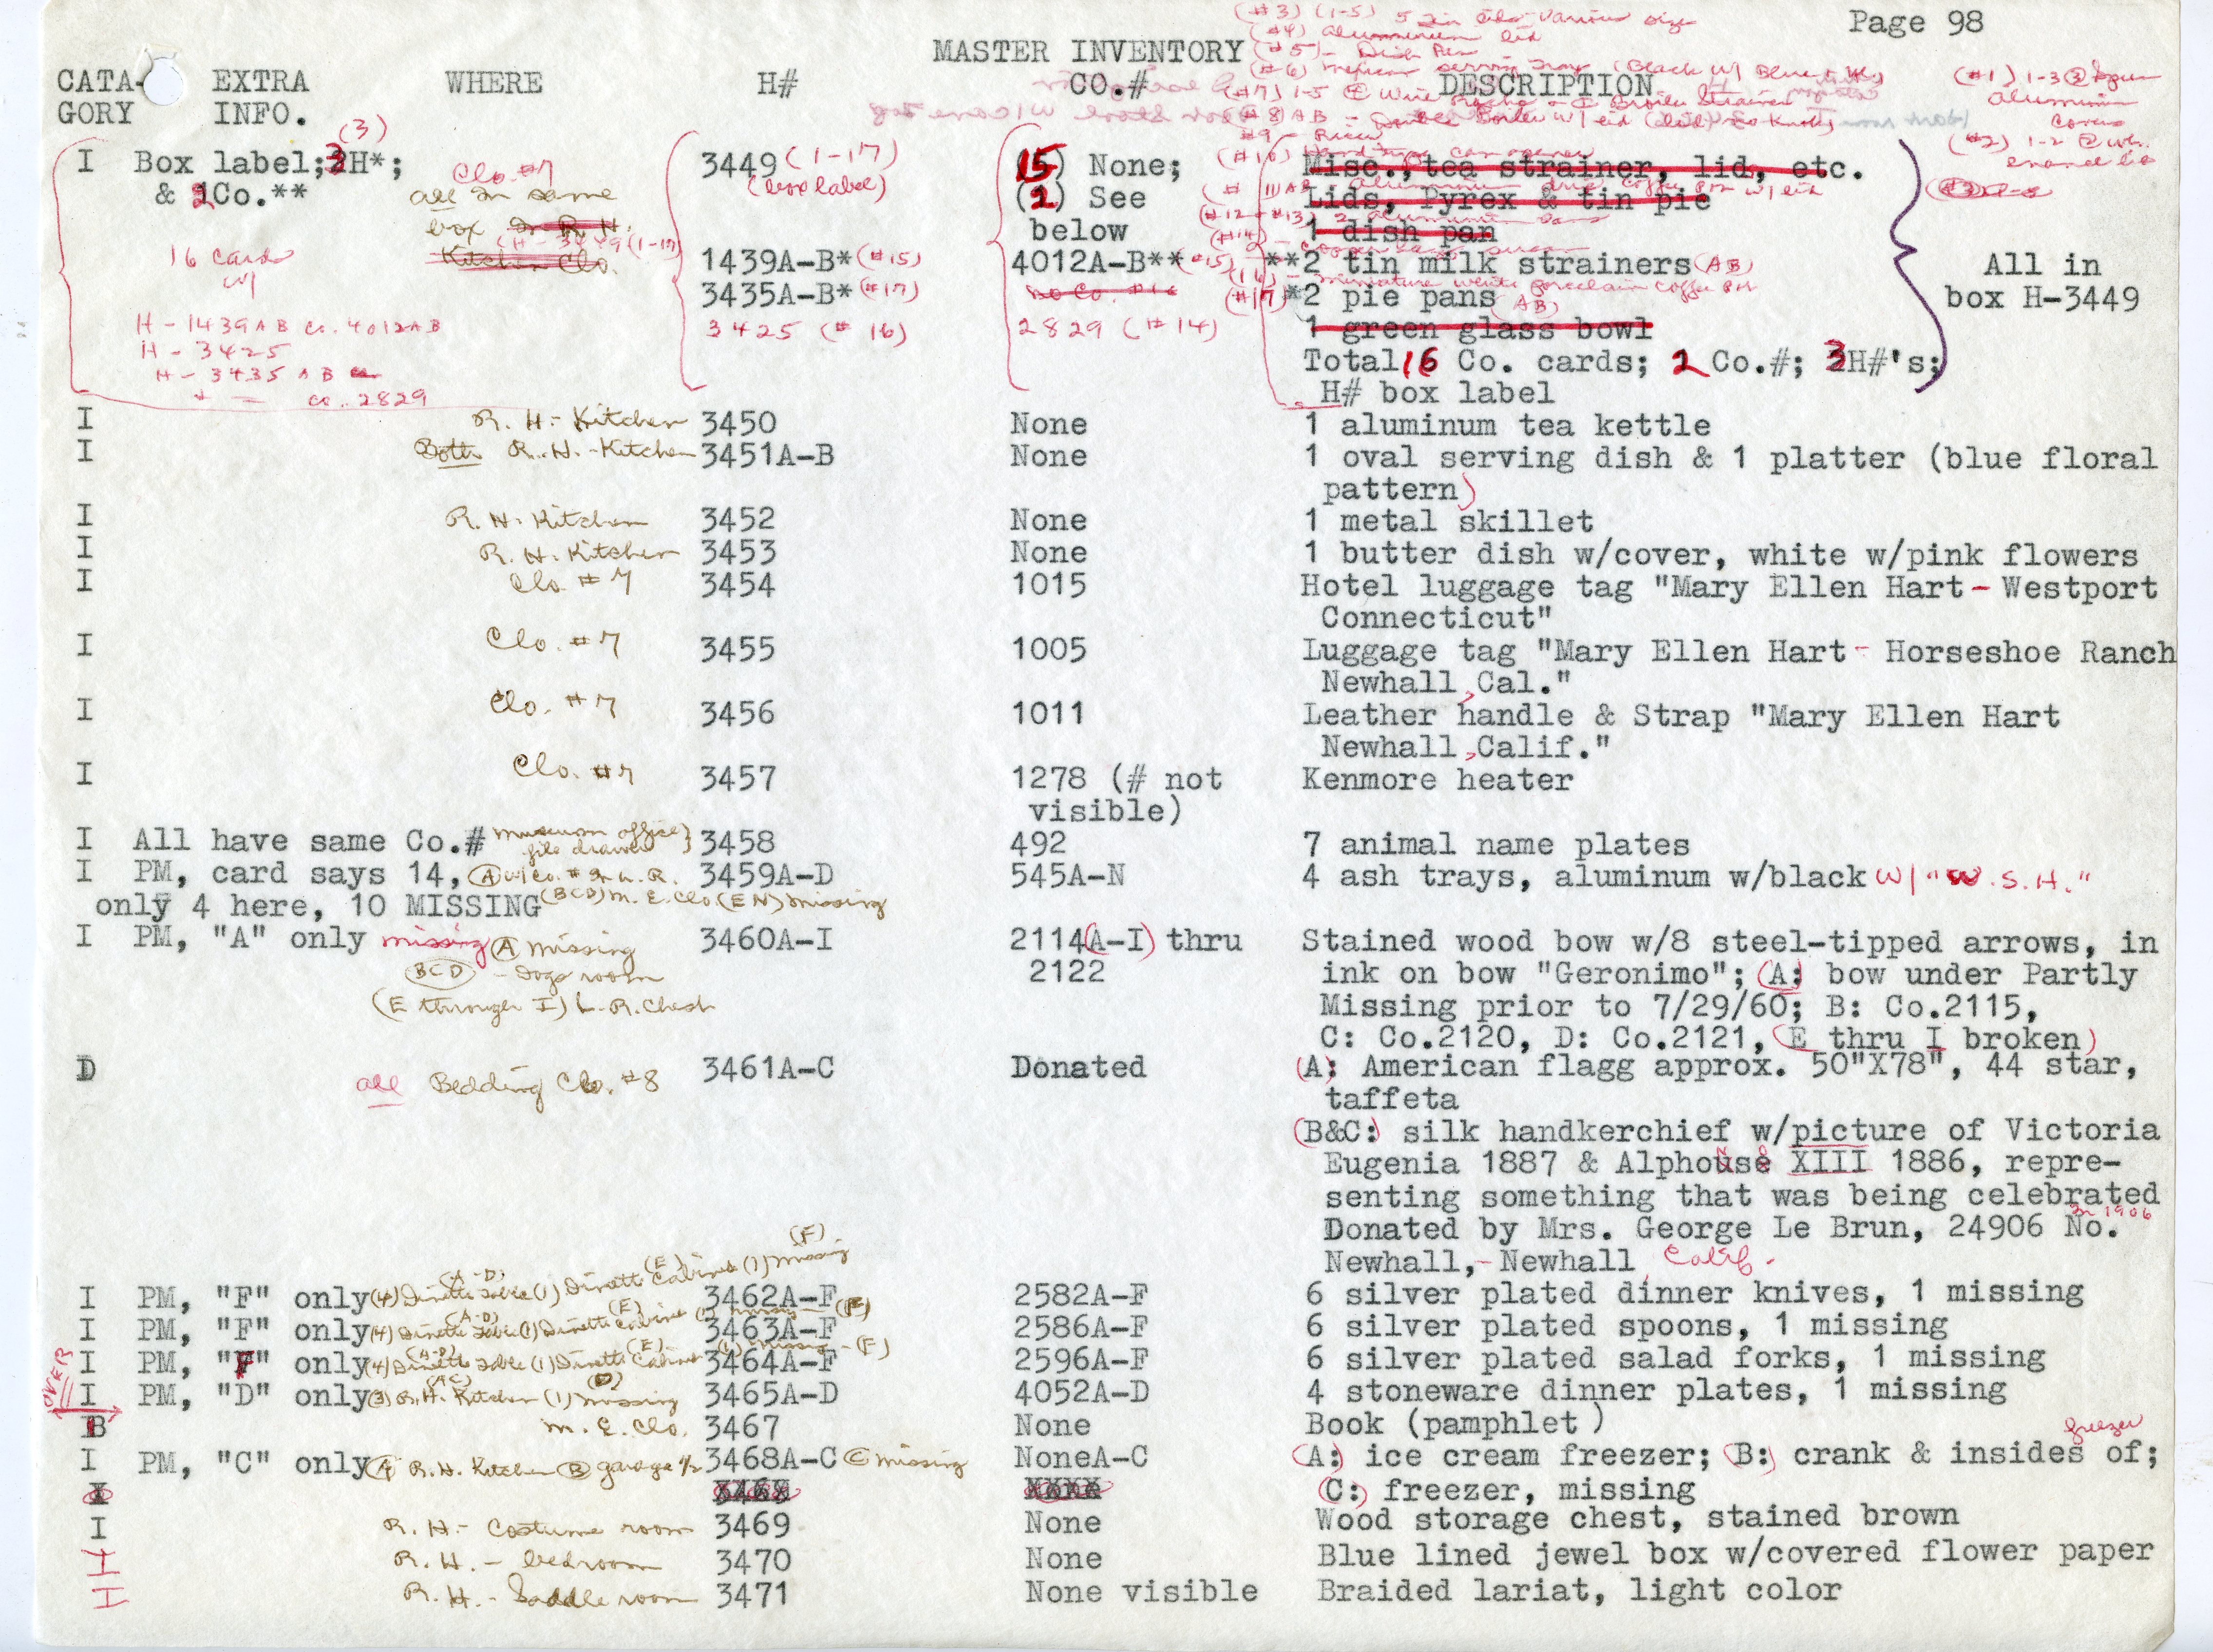 (#3) (1-5) 5 tin lids various size
Page 98
(#4) aluminum lid
MASTER INVENTORY
(#5) - Dish Pan
(#6) mexican serving tray (Black w/ Blue
CATA- EXTRA WHERE H# CO.# DESCRIPTION
GORY INFO.
(#1) 1-3
aluminum
covers
(#2) 1-2
enamel lid
(#7) 1-5
#8) AB - Double Boiler w/ lid
#9 - Ricer
(#10)
(3)
I Box label; 3H*; Clo. #7 3449 (1-17) (15) None; Misc., tea strainer, lid, etc.
& 2Co.** all in same (box label) (2) See Lids, Pyrex & tin pie
box in R.H. below 1 dish pan
Kitchen Clo. (H-3449 (1-17)
16 cards
w/
1439A-B* (#15) 4012A-B** (#15) **2 tin milk strainers (AB) All in
3435A-B* (#17) no Co. #16 (#17) *2 pie pans (AB) box H-3449
H-1439AB Co. 4012AB 3425 (#16) 2829 (#14) 1 green glass bowl
H-3425 Total 16 Co. cards; 2 Co.#; 3H#'s;
H-3435 AB
Co. 2829 H# box label
I R. H. - Kitchen 3450 None 1 aluminum tea kettle
I Both R. H. - Kitchen 3451A-B None 1 oval serving dish & 1 platter (blue floral
pattern)
I R. H. Kitchen 3452 None 1 metal skillet
I R. H. Kitchen 3453 None 1 butter dish w/cover, white w/pink flowers
I Clo. #7 3454 1015 Hotel luggage tag "Mary Ellen Hart - Westport
Connecticut"
I Clo. #7 3455 1005 Luggage tag "Mary Ellen Hart - Horseshoe Ranch
Newhall, Cal."
I Clo. #7 3456 1011 Leather handle & Strap "Mary Ellen Hart
Newhall, Calif."
I Clo. #7 3457 1278 (# not Kenmore heater
visible)
I All have same Co.# museum office file drawer} 3458 492 7 animal name plates
I PM, card says 14, (A) w/Co. # in L. R. 3459A-D 545A-N 4 ash trays, aluminum w/black w/ "W.S.H."
only 4 here, 10 MISSING (BCD) M. E. Clo. (EN) missing
I PM, "A" only missing (A) missing 3460A-I 2114(A-I) thru Stained wood bow w/8 steel-tipped arrows, in
(BCD) - Dogs room 2122 ink on bow "Geronimo"; (A:) bow under Partly
(E through I) L. R. Chest Missing prior to 7/29/60; B: Co.2115,
C: Co.2120, D: Co.2121, (E thru I broken)
D all Bedding Clo. #8 3461A-C Donated (A: American flagg approx. 50"X78", 44 star,
taffeta
(B&C:) silk handkerchief w/picture of Victoria
Eugenia 1887 & Alphouse XIII 1886, repre-
senting something that was being celebrated
in 1906
Donated by Mrs. George Le Brun, 24906 No.
Newhall,- Newhall, Calif.
I PM, "F" only (4) Dinette table (A-D) (1) Dinette Cabinet (E) (1) missing (F) 3462A-F 2582A-F 6 silver plated dinner knives, 1 missing
I PM, "F" only (4) Dinette table (A-D) (1) Dinette Cabinet (E) (1) missing (F) 3463A-F 2586A-F 6 silver plated spoons, 1 missing
I PM, "F" only (4) Dinette table (A-D) (1) Dinette Cabinet (E) (1) missing - (F) 3464A-F 2596A-F 6 silver plated salad forks, 1 missing
OVER
I PM, "D" only (3) R. H. Kitchen (AC) (1) missing (D) 3465A-D 4052A-D 4 stoneware dinner plates, 1 missing
B M. E. Clo. 3467 None Book (pamphlet )
freezer
I PM, "C" only (A) R. H. Kitchen (B) garage 1/2 3468A-C (C) missing NoneA-C (A:) ice cream freezer; (B:) crank & insides of;
I 3468 XXXX (C:) freezer, missing
I R. H. - Costume room 3469 None Wood storage chest, stained brown
I R. H. - bedroom 3470 None Blue lined jewel box w/covered flower paper
I R. H. - Saddle room 3471 None visible Braided lariat, light color